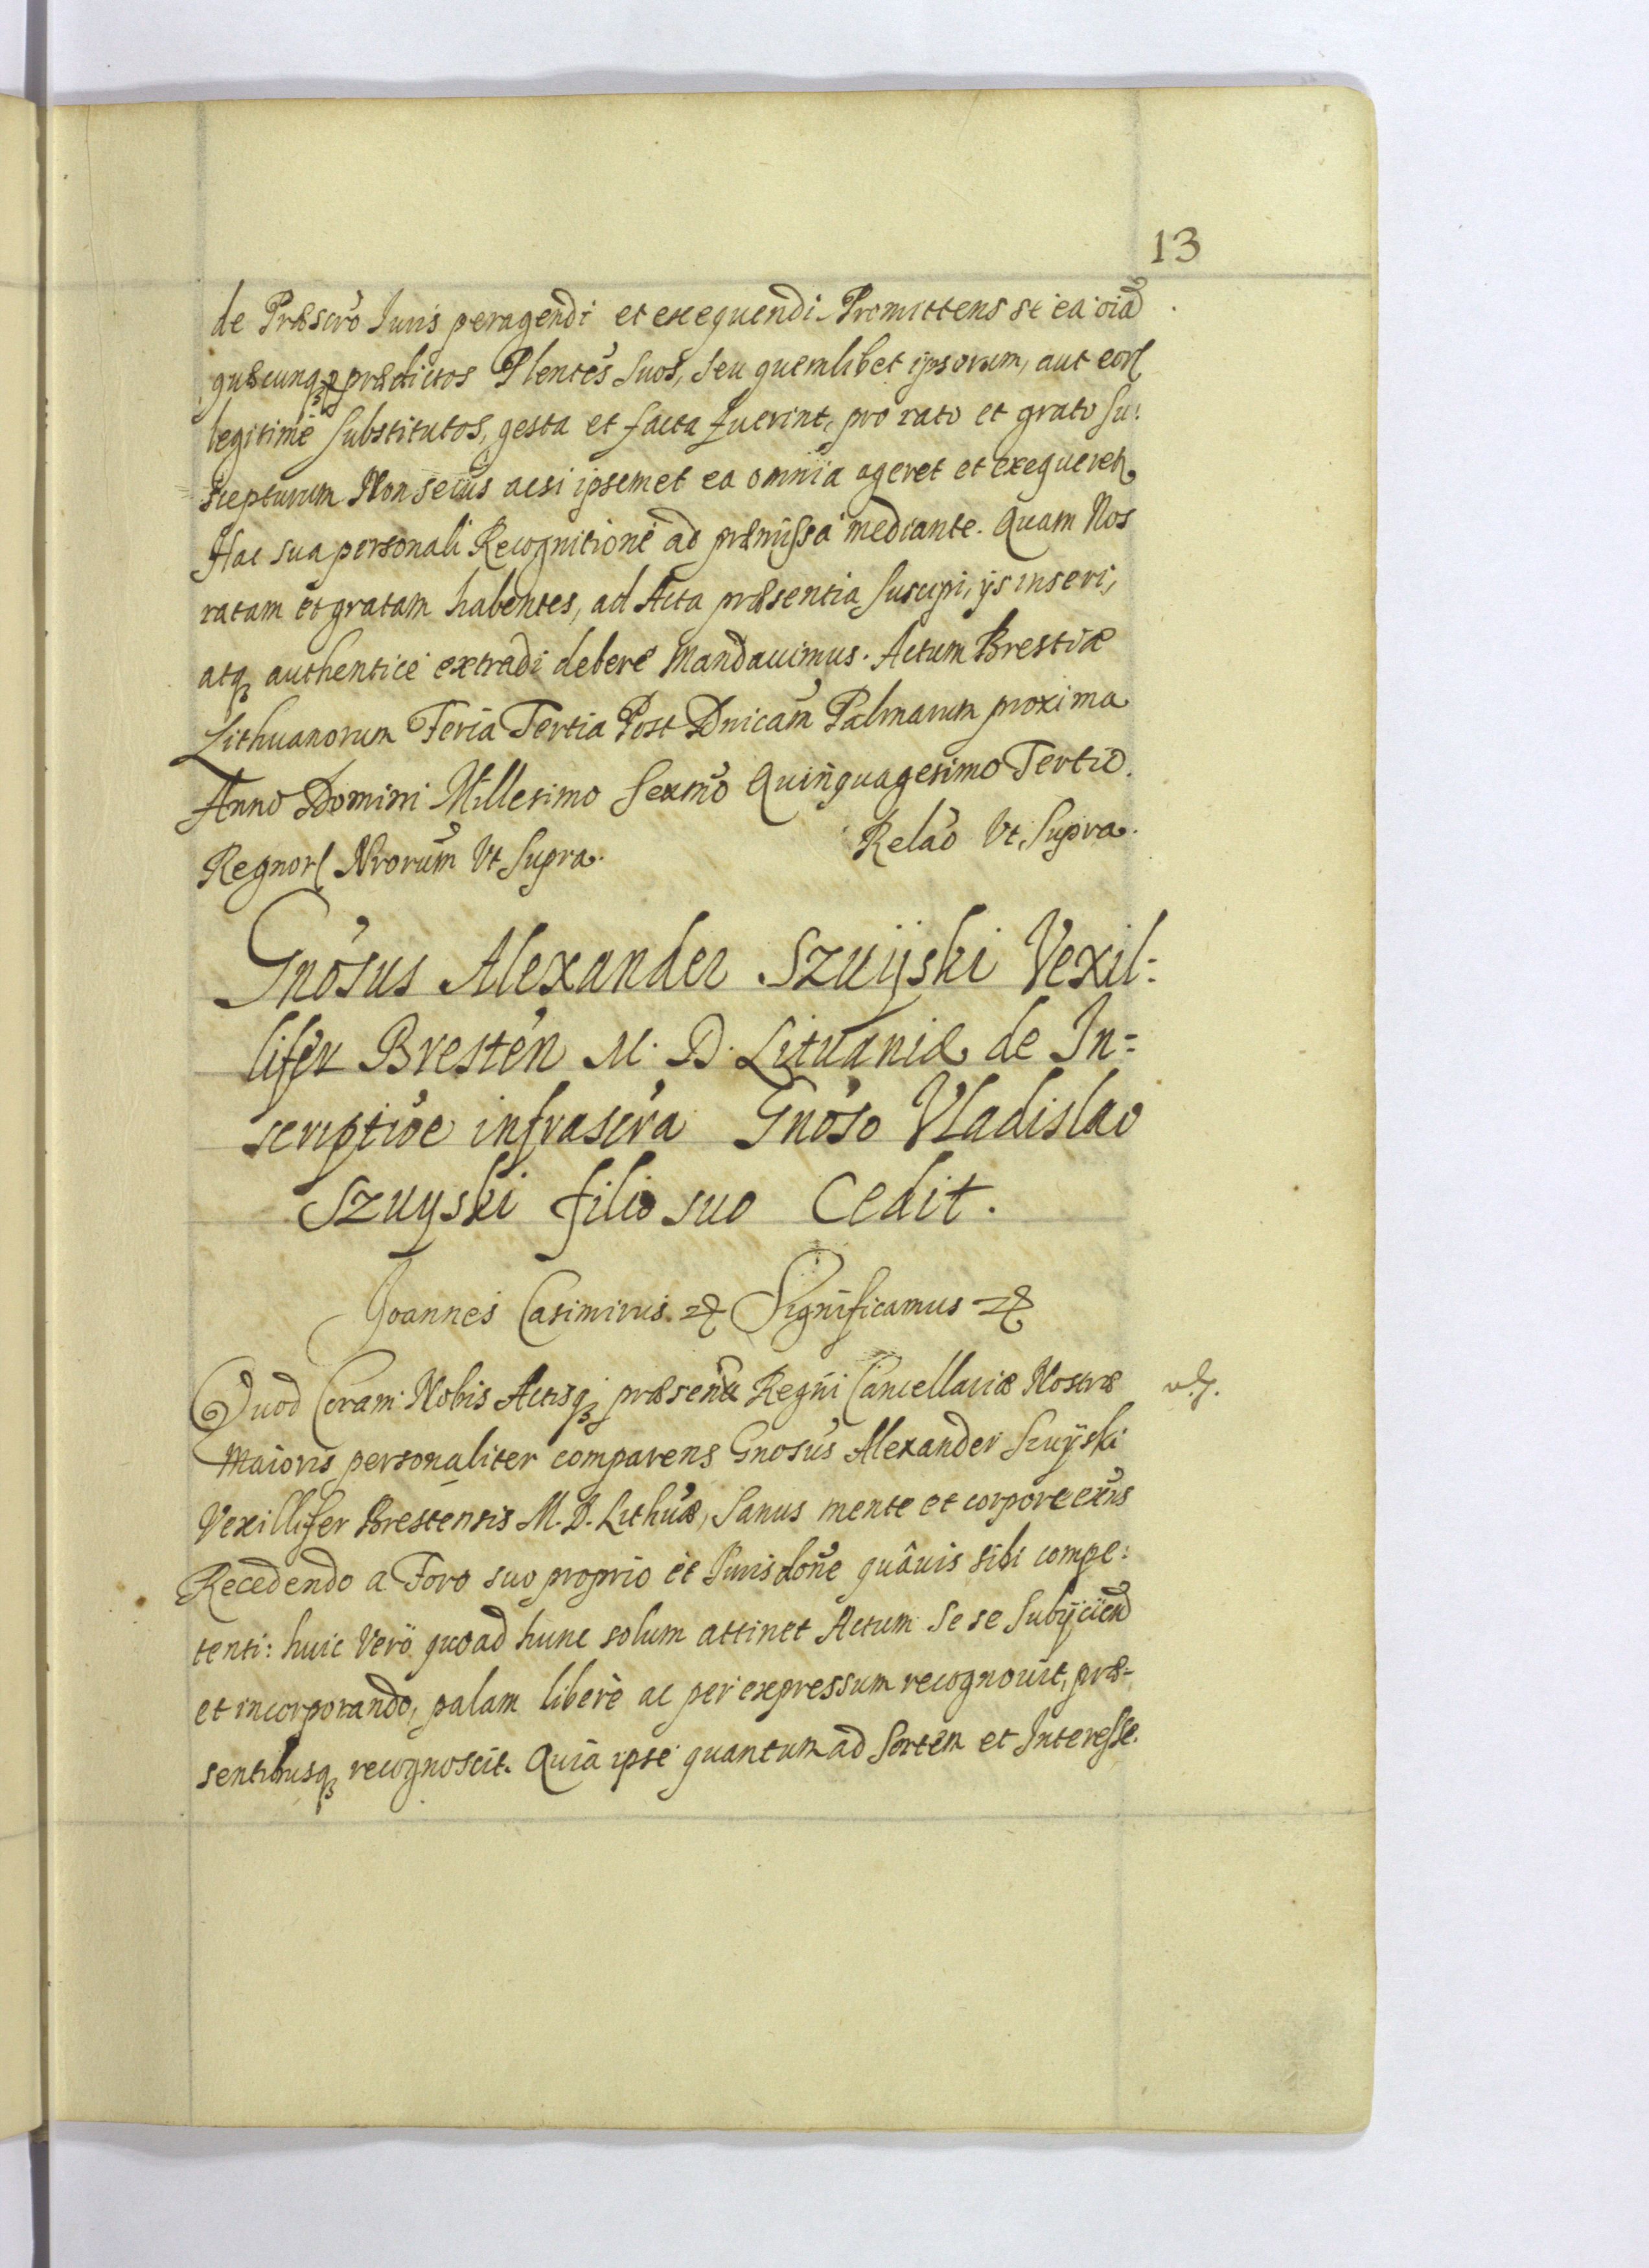 13
de Præscrõ Iuris peragendi et exequendi. Promittens se ea oia
quæcunqꝫ p prædictos Plentes suos, seu quemlibet ipsorum, aut eorꝝ
legitime substitutos, gesta et facta fuerint, pro rato et grato su:
scepturum Non secus acsi ipsemet ea omnia ageret et exequeretꝛ
Hac sua personali Recognitione ad præmissa mediante. Quam Nos
ratam et gratam habentes, ad Acta præsentia suscipi, ijs inseri,
atqꝫ authentice extradi debere mandauimus. Actum Brestiæ
Lithuanorum Feria Tertia Post Dnicam Palmarum proxima
Anno Domini Millesimo Sexmo Quinquagesimo Tertio.
Regnorꝝ Nrorum Vt Supra. Relao Vt Supra.
Gnosus Alexander Szuijski Vexil:
lifer Bresten M. D. Lituaniæ de In=
scriptioe infrascra Gnoso Vladislao
Szuyski filio suo Cedit.
Joannes Casimirus ꝛꝭ Significamus ꝛꝭ
Quod Coram Nobis Actisqꝫ præsentibꝫ Regni Cancellariæ Nostræ
Maioris personaliter comparens Gnosus Alexander Szuijski
Vexillifer Brestensis M. D. Lithuæ, Sanus mente et corpore exñs
Recedendo a Foro suo proprio et Jurisdone quâuis sibi compe:
tenti: huic Verö quoad hunc solum attinet Actum Se se Subijciend
et incorporando, palam liberè ac per expressum recognouit, præ=
sentibusqꝫ recognoscit. Quia ipse quantum ad Sortem et Interesse